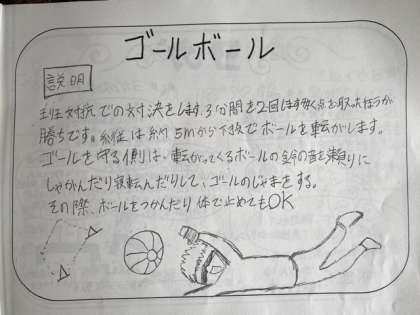 ゴールボール
説明
班対抗での対決をします。3分間を2回します多く点を取った方が
勝ちです。 は約5mから下投でボールを転がします。
ゴールを守る側は、転がってくるボールの鈴の音を頼りに
しゃがんだり寝転んだりして、ゴールのじゃまをする。
その際、ボールをつかんだり体で止めてもOK